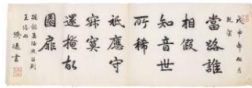 當路誰
相假
知音世
所稀
祇應守
寂寞
還掩故
園扉
書